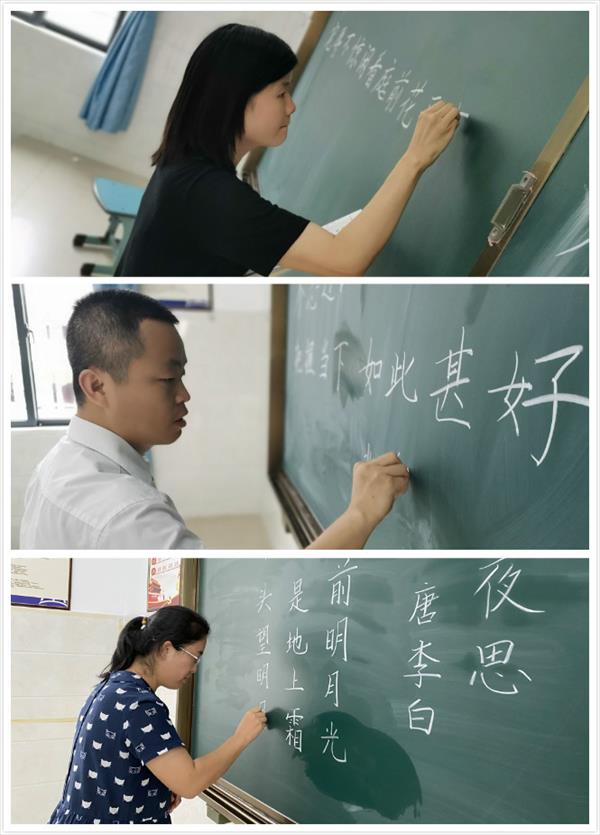 宠辱不惊闲看庭前花
当下如此甚好
夜思
唐李白
前明月光
是地上霜
头望明